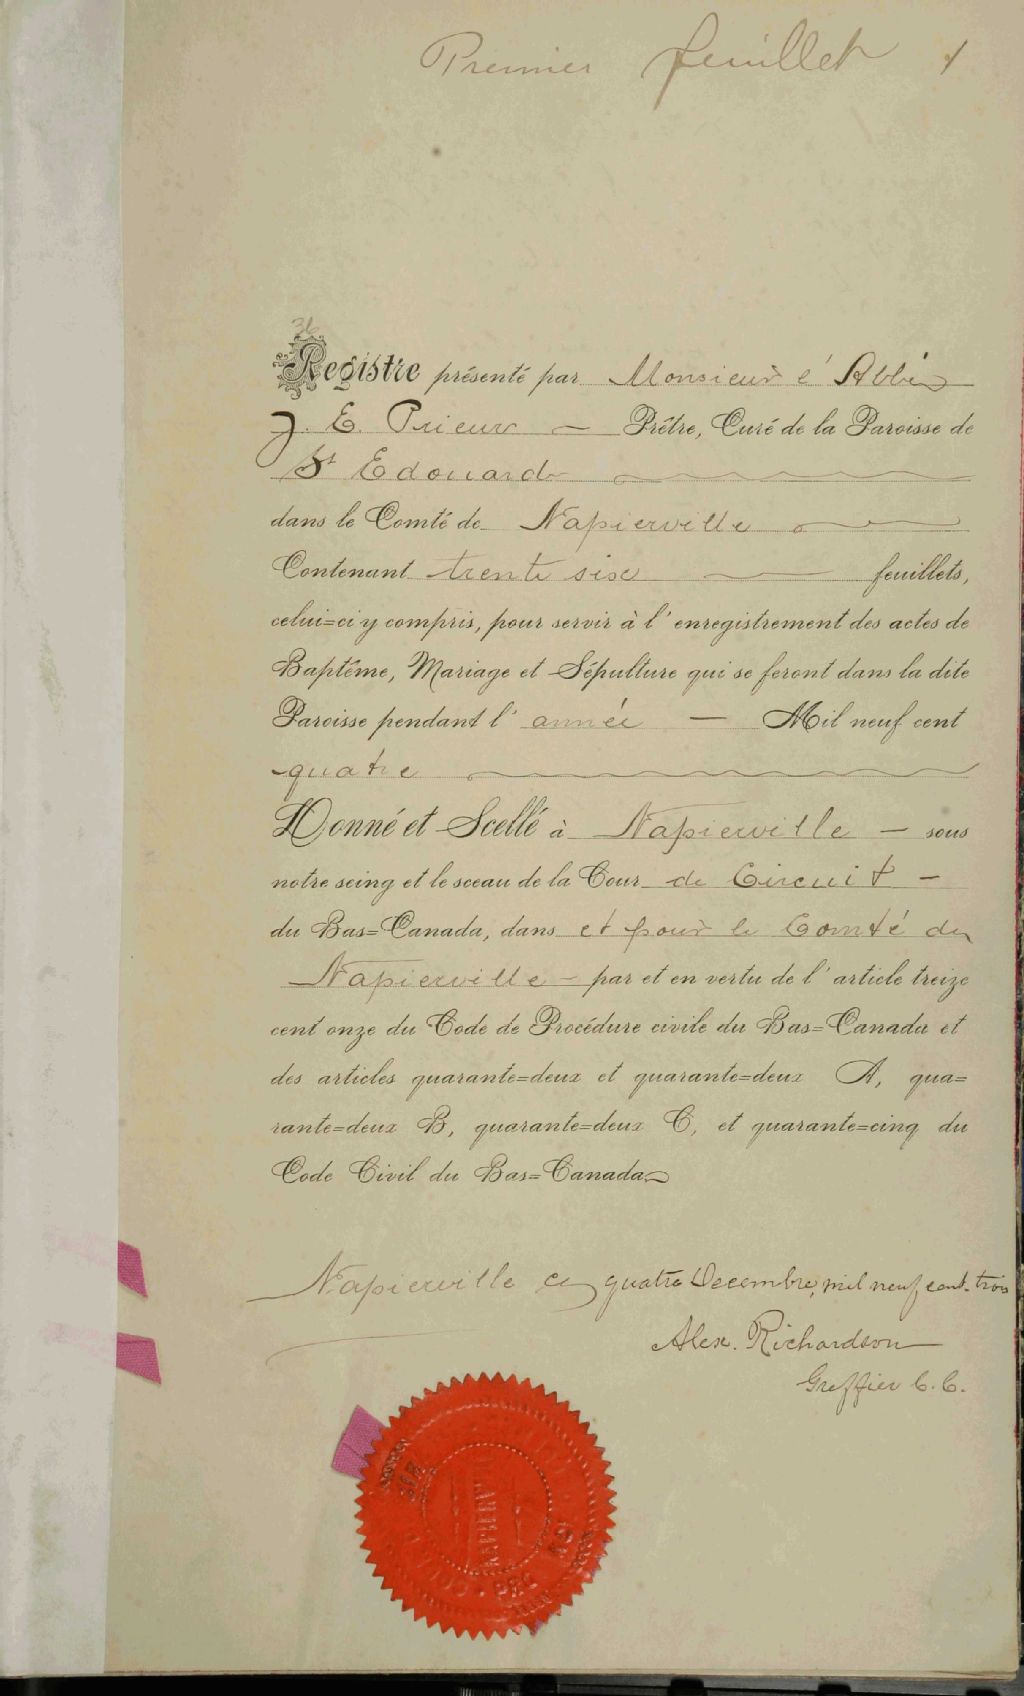 Premier feuillet 1
36
Registre présenté par Monsieur l'Abbé
J. E. Prieur — Prêtre, Curé de la Paroisse de
St Edouard
dans le Comté de Napierville
Contenant trente six feuillets,
celui=ci y compris, pour servir à l'enregistrement des actes de
Baptême, Mariage et Sépulture qui se feront dans la dite
Paroisse pendant l'année — Mil neuf cent
quatre
Donné et Scellé à Napierville — sous
notre seing et le sceau de la Cour de Circuit —
du Bas=Canada, dans et pour le Comté de
Napierville — par et en vertu de l'article treize
cent onze du Code de Procédure civile du Bas=Canada et
des articles quarante=deux et quarante=deux A, qua=
rante=deux B, quarante=deux C, et quarante=cinq du
Code Civil du Bas=Canada
Napierville ce quatre Decembre, mil neuf cent trois
Alex. Richardson
Greffier C. C.